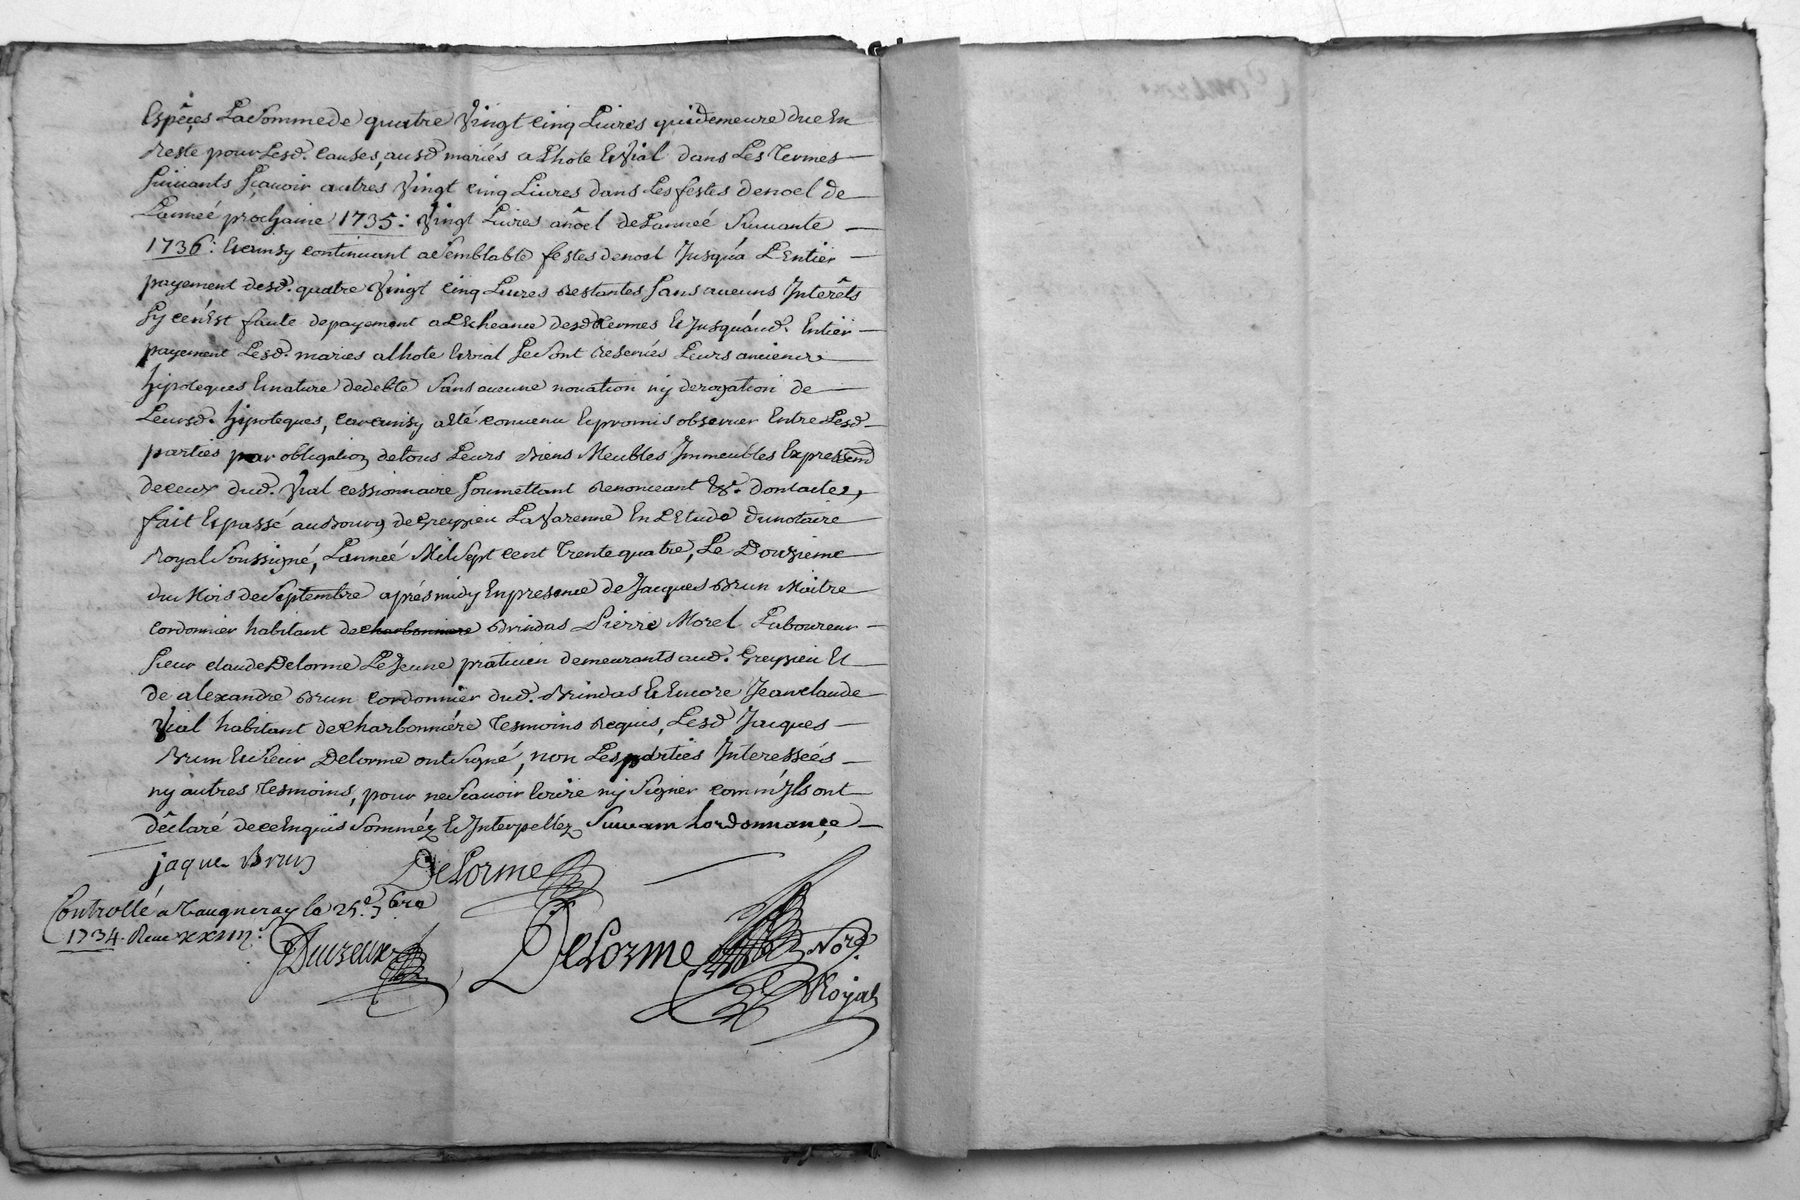 Espéçes La Somme de quatre Vingt Cinq Livres qui demeure due En
Reste pour Lesd. Causes, ausd mariés a Lhote Et Vial dans Les Termes
Suivants Sçavoir autres Vingt Cinq Livres dans Les festes de noel de
L'anneé prochaine 1735: Vingt Livres a noel de L'anneé Suivante
1736: Et ainsy continuant a Semblable festes de noel Jusqu'a L'Entier
payement desd. quatre Vingt Cinq Livres Restantes Sans aucuns Interêts
Sy ce n'Est faute de payement a L'Echeance desd Termes Et Jusqu'aud. Entier
payement Lesd. mariés alhote Et vial Se Sont Reservés Leurs anciens
hipoteques Et nature de debte Sans aucune novation ny derogation de
Leursd. hipoteques, Car ainsy a Eté convenu Et promis observer Entre Lesd
parties par obligation de tous Leurs Biens Meubles Immeubles Expressemt
de ceux dud. Vial cessionnaire Soumettant Renonceant &. Dont acte,
fait Et passé au Bourg de Greysieu La Varenne En L'Etude du notaire
Royal Soussigné, L'anneé Mil Sept Cent Trente quatre, Le Douzieme
du Mois de Septembre aprés midy En presence de Jacques Brun Maitre
Cordonnier habitant de charbonniere Brindas Pierre Morel Laboureur
Sieur claude Delorme Le Jeune praticien demeurants aud. Greysieu Et
de alexandre Brun Cordonnier dud. Brindas Et Encore Jean claude
Vial habitant de Charbonniére Tesmoins Requis, Lesd Jacques
Brun Et Sieur Delorme ont Signé, non Les parties Interesseés
ny autres Tesmoins, pour ne Scavoir Ecrire ny Signer comm'Ils ont
Déclaré de ce Enquis Sommés Et Interpellez Suivam Lordonnançe
jaque Brun
DeLorme
Controllé a Vaugneray le 25e 7bre
1734. Receu xxiiij s.
DeLorme Nore.
Royal